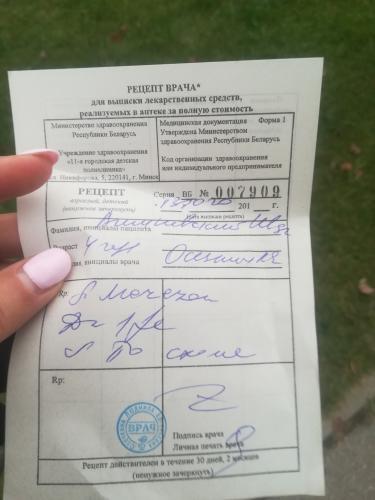 РЕЦЕПТ ВРАЧА*
для выписки лекарственных средств,
реализуемых в аптеке за полную стоимость
Министерство здравоохранения
Республики Беларусь
Учреждение здравоохранения
«11-я городская детская
поликлиника»
ул. Никифорова, 5, 220141, г. Минск
Медицинская документация Форма 1
Утверждена Министерством
здравоохранения Республики Беларусь
Код организации здравоохранения
или индивидуального предпринимателя
РЕЦЕПТ
взрослый, детский
(ненужное зачеркнуть)
Серия ВБ № 007909
201 г.
(дата выписки рецепта)
Фамилия, инициалы пациента
Возраст 4 года
инициалы врача
Rp.
по схеме
Rp:
ВРАЧ
Подпись врача
Личная печать врача
Рецепт действителен в течение 30 дней, 2 месяцев
(ненужное зачеркнуть)